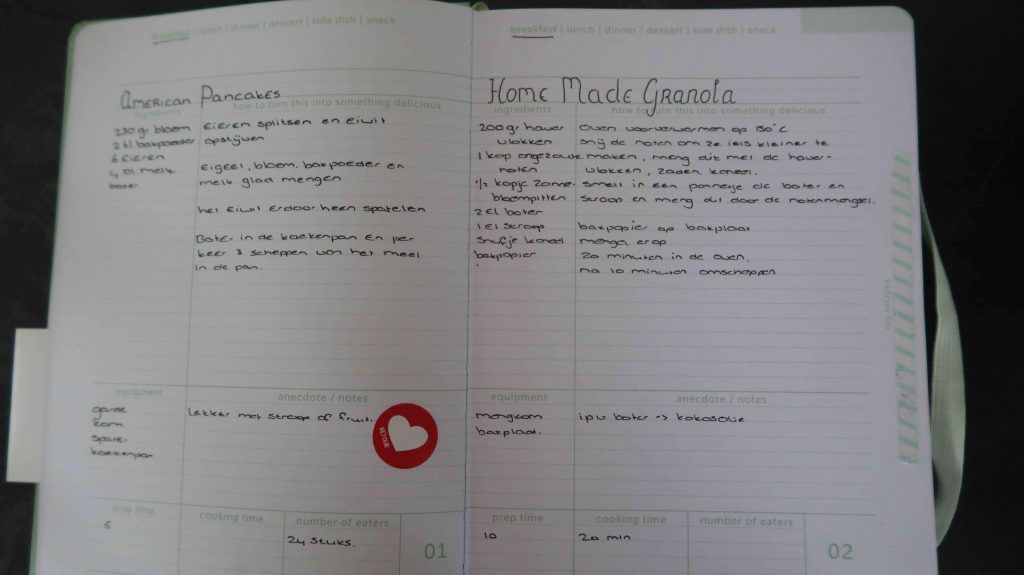 breakfast | lunch | dinner | dessert | side dish | snack
American Pancakes
ingredients
how to turn this into something delicious
230 gr bloem
2 tl bakpoeder
6 eieren
4 dl melk
boter
Eieren splitsen en eiwit
opstijven
Eigeel, bloem, bakpoeder en
melk glad mengen
het eiwit erdoorheen spatelen
Boter in de koekenpan en per
keer 3 scheppen van het meel
in de pan.
equipment
garde
kom
spatel
koekenpan
anecdote / notes
Lekker met stroop of fruit.
RETOUR
prep time
5
cooking time
number of eaters
24 stuks.
01
breakfast | lunch | dinner | dessert | side dish | snack
Home Made Granola
ingredients
how to turn this into something delicious
200 gr haver
vlokken
1 kop ongezoute
noten
1/2 kopje zonne-
bloempitten
2 el boter
1 el stroop
snufje kaneel
bakpapier
oven voorverwarmen op 150°C
snij de noten om ze iets kleiner te
maken, meng dit met de haver-
vlokken, zaden, kaneel.
smelt in een pannetje de boter en
stroop en meng dit door de notenmengsel.
bakpapier op bakplaat
mengsel erop
20 minuten in de oven.
na 10 minuten omscheppen
equipment
mengkom
bakplaat.
anecdote / notes
ipv boter -> kokosolie
prep time
10
cooking time
20 min
number of eaters
02